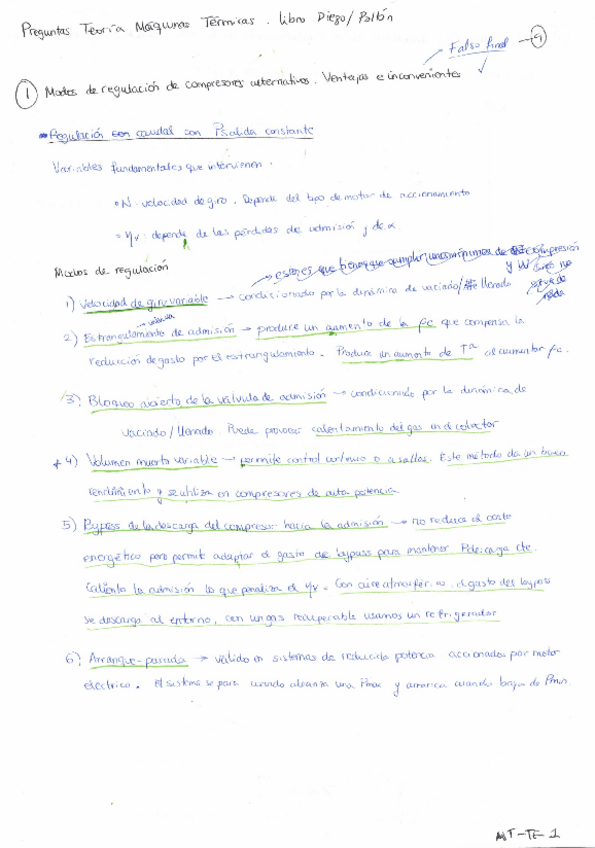 Preguntas Teoría Máquinas Térmicas. Libro Diego/Pastón
Falso final → 9
① Modos de regulación de compresores alternativos. Ventajas e inconvenientes ✓
Regulación con caudal con Psalida constante
Variables fundamentales que intervienen.
N: velocidad de giro. Depende del tipo de motor de accionamiento
ηv: depende de las pérdidas de admisión y de α.
Modos de regulación
1) Velocidad de giro variable → condicionado por la dinámica de vaciado/llenado
2) Estrangulamiento de admisión → produce un aumento de la rc que compensa la
reducción de gasto por el estrangulamiento. Produce un aumento de Tª al aumentar rc.
3) Bloqueo abierto de la válvula de admisión → condicionado por la dinámica de
vaciado/llenado. Puede provocar calentamiento del gas en el colector
4) Volumen muerto variable → permite control continuo o a saltos. Este método da un buen
rendimiento y se utiliza en compresores de alta potencia
5) Bypass de la descarga del compresor hacia la admisión → no reduce el coste
energético pero permite adaptar el gasto de bypass para mantener Pdescarga cte.
Calienta la admisión lo que penaliza el ηv = Con aire atmosférico, el gasto del bypass
se descarga al entorno, con un gas recuperable usamos un refrigerador
6) Arranque-parada → válido en sistemas de reducida potencia accionados por motor
eléctrico. El sistema se para cuando alcanza una Pmax y arranca cuando baja de Pmin.
MT-TE-1